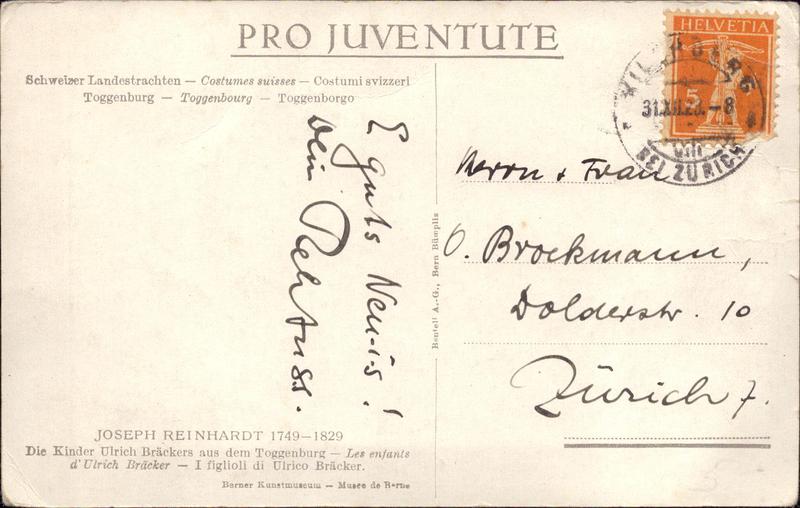 PRO JUVENTUTE
Schweizer Landestrachten — Costumes suisses — Costumi svizzeri
Toggenburg — Toggenbourg — Toggenborgo
E guts Neu-is!
Dein
JOSEPH REINHARDT 1749–1829
Die Kinder Ulrich Bräckers aus dem Toggenburg — Les enfants
d'Ulrich Bräcker — I figlioli di Ulrico Bräcker.
Berner Kunstmuseum — Musée de Berne
Benteli A.-G., Bern Bümpliz
HELVETIA
5
31.XII.23.–8
BEI ZÜRICH
Herrn & Frau
O. Brockmann,
Dolderstr. 10
Zürich 7.